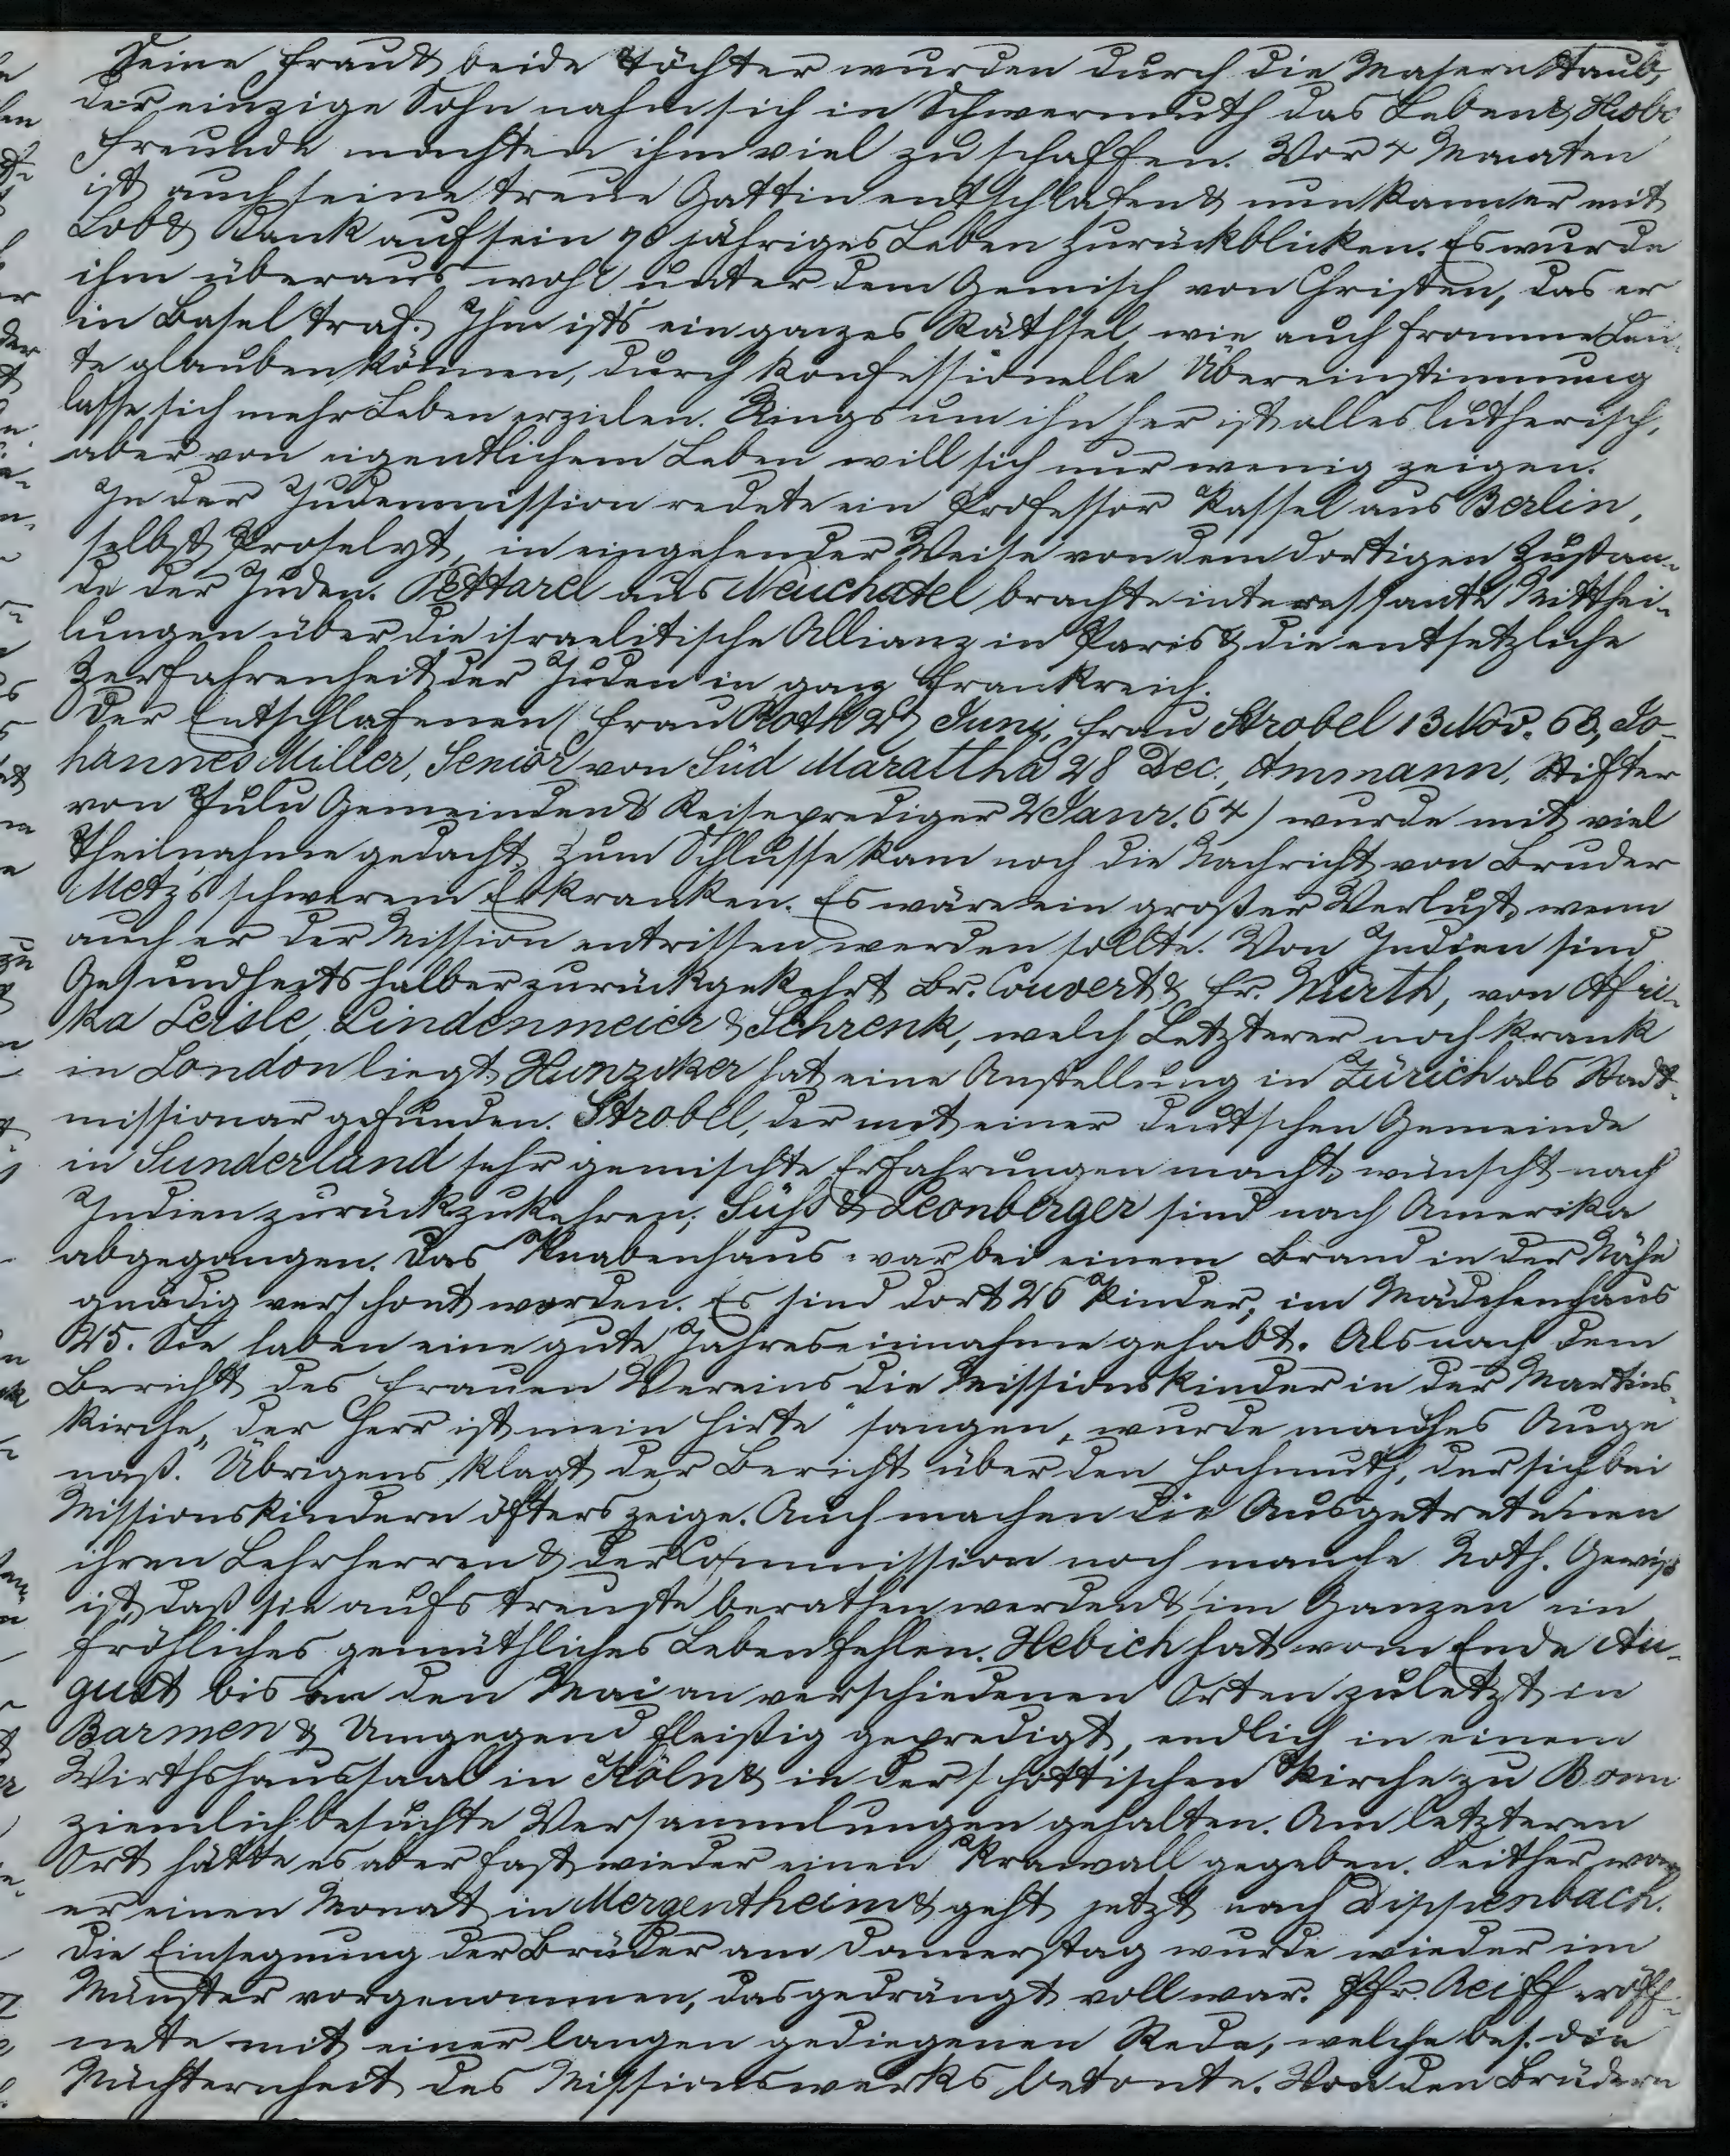 Seine Frau & beide Töchter wurden durch die Masern taub,
der einzige Sohn nahm sich in Schwermuth das Leben & Hiobs
freunde machten ihm viel zu schaffen. Vor 4 Monaten
ist auch seine treue Gattin entschlafen & nun kann er mit
Lob & Dank auf sein 70 jähriges Leben zurückblicken. Es wurde
ihm überaus wohl unter dem Gemisch von Christen, das er
in Basel traf. Ihm ists ein ganzes Räthsel wie auch fromme Leu-
te glauben können, durch konfessionelle Übereinstimmung
lasse sich mehr Leben erzielen. Rings um ihn her ist alles lutherisch,
aber von eigentlichem Leben will sich nur wenig zeigen.
In der Judenmission redete ein Professor Kassel aus Berlin,
selbst Proselyt, in eingehender Weise von dem dortigen Zustan-
de der Juden. Pettarel aus Neuchatel brachte interessante Mitthei-
lungen über die israelitische Allianz in Paris & die entsetzliche
Zerfahrenheit der Juden in ganz Frankreich.
Der Entschlafenen (Frau Roth 2 Juni, Frau Strobel 13 Nov. 63, Jo-
hannes Miller, Senior von Süd Marattha 28 Dec., Ammann, Stifter
von Tulu Gemeinden & Reiseprediger 2 Janr. 64) wurde mit viel
Theilnahme gedacht. Zum Schlusse kam noch die Nachricht von Bruder
Metz's schwerem Erkranken. Es wäre ein großer Verlust, wenn
auch er der Mission entrissen werden sollte. Von Indien sind
Gesundheitshalber zurückgekehrt Br. Convert & Fr. Würth, von Afri-
ka Leisle, Lindenmeier & Schrenk, welch Letzterer noch krank
in London liegt. Hunziker hat eine Anstellung in Zürich als Stadt-
missionar gefunden. Strobel, der mit einer deutschen Gemeinde
in Sunderland sehr gemischte Erfahrungen macht, wünscht nach
Indien zurückzukehren; Süß & Leonberger sind nach Amerika
abgegangen. Das Knabenhaus war bei einem Brand in der Nähe
gnädig verschont worden. Es sind dort 26 Kinder, im Mädchenhaus
25. Sie haben eine gute Jahreseinnahme gehabt. Als nach dem
Bericht des Frauen Vereins die Missionskinder in der Martins-
kirche „der Herr ist mein Hirte" sangen, wurde manches Auge
naß. Übrigens klagt der Bericht über den Hochmuth, der sich bei
Missionskindern öfters zeige. Auch machen die Ausgetretenen
ihren Lehrherren & der Commission noch manche Noth. Gewiß
ist, daß sie aufs treuste berathen werden & im Ganzen ein
fröhliches gemüthliches Leben fehlen. Hebich hat vom Ende Au-
gust bis in den Mai an verschiedenen Orten zuletzt in
Barmen & Umgegend fleißig gepredigt, endlich in einem
Wirthshaussaal in Köln & in der schottischen Kirche zu Bonn
ziemlich besuchte Versammlungen gehalten. Am letzteren
Ort hätte es aber fast wieder einen Krawall gegeben. Seither war
er einen Monat in Mergentheim & geht jetzt nach Dippenbach.
Die Einsegnung der Brüder am Donnerstag wurde wieder im
Münster vorgenommen, das gedrängt voll war. Pfr. Reiff eröff-
nete mit einer langen gediegenen Rede, welche bes. die
Nüchternheit des Missionswerks betonte. Von den Brüdern